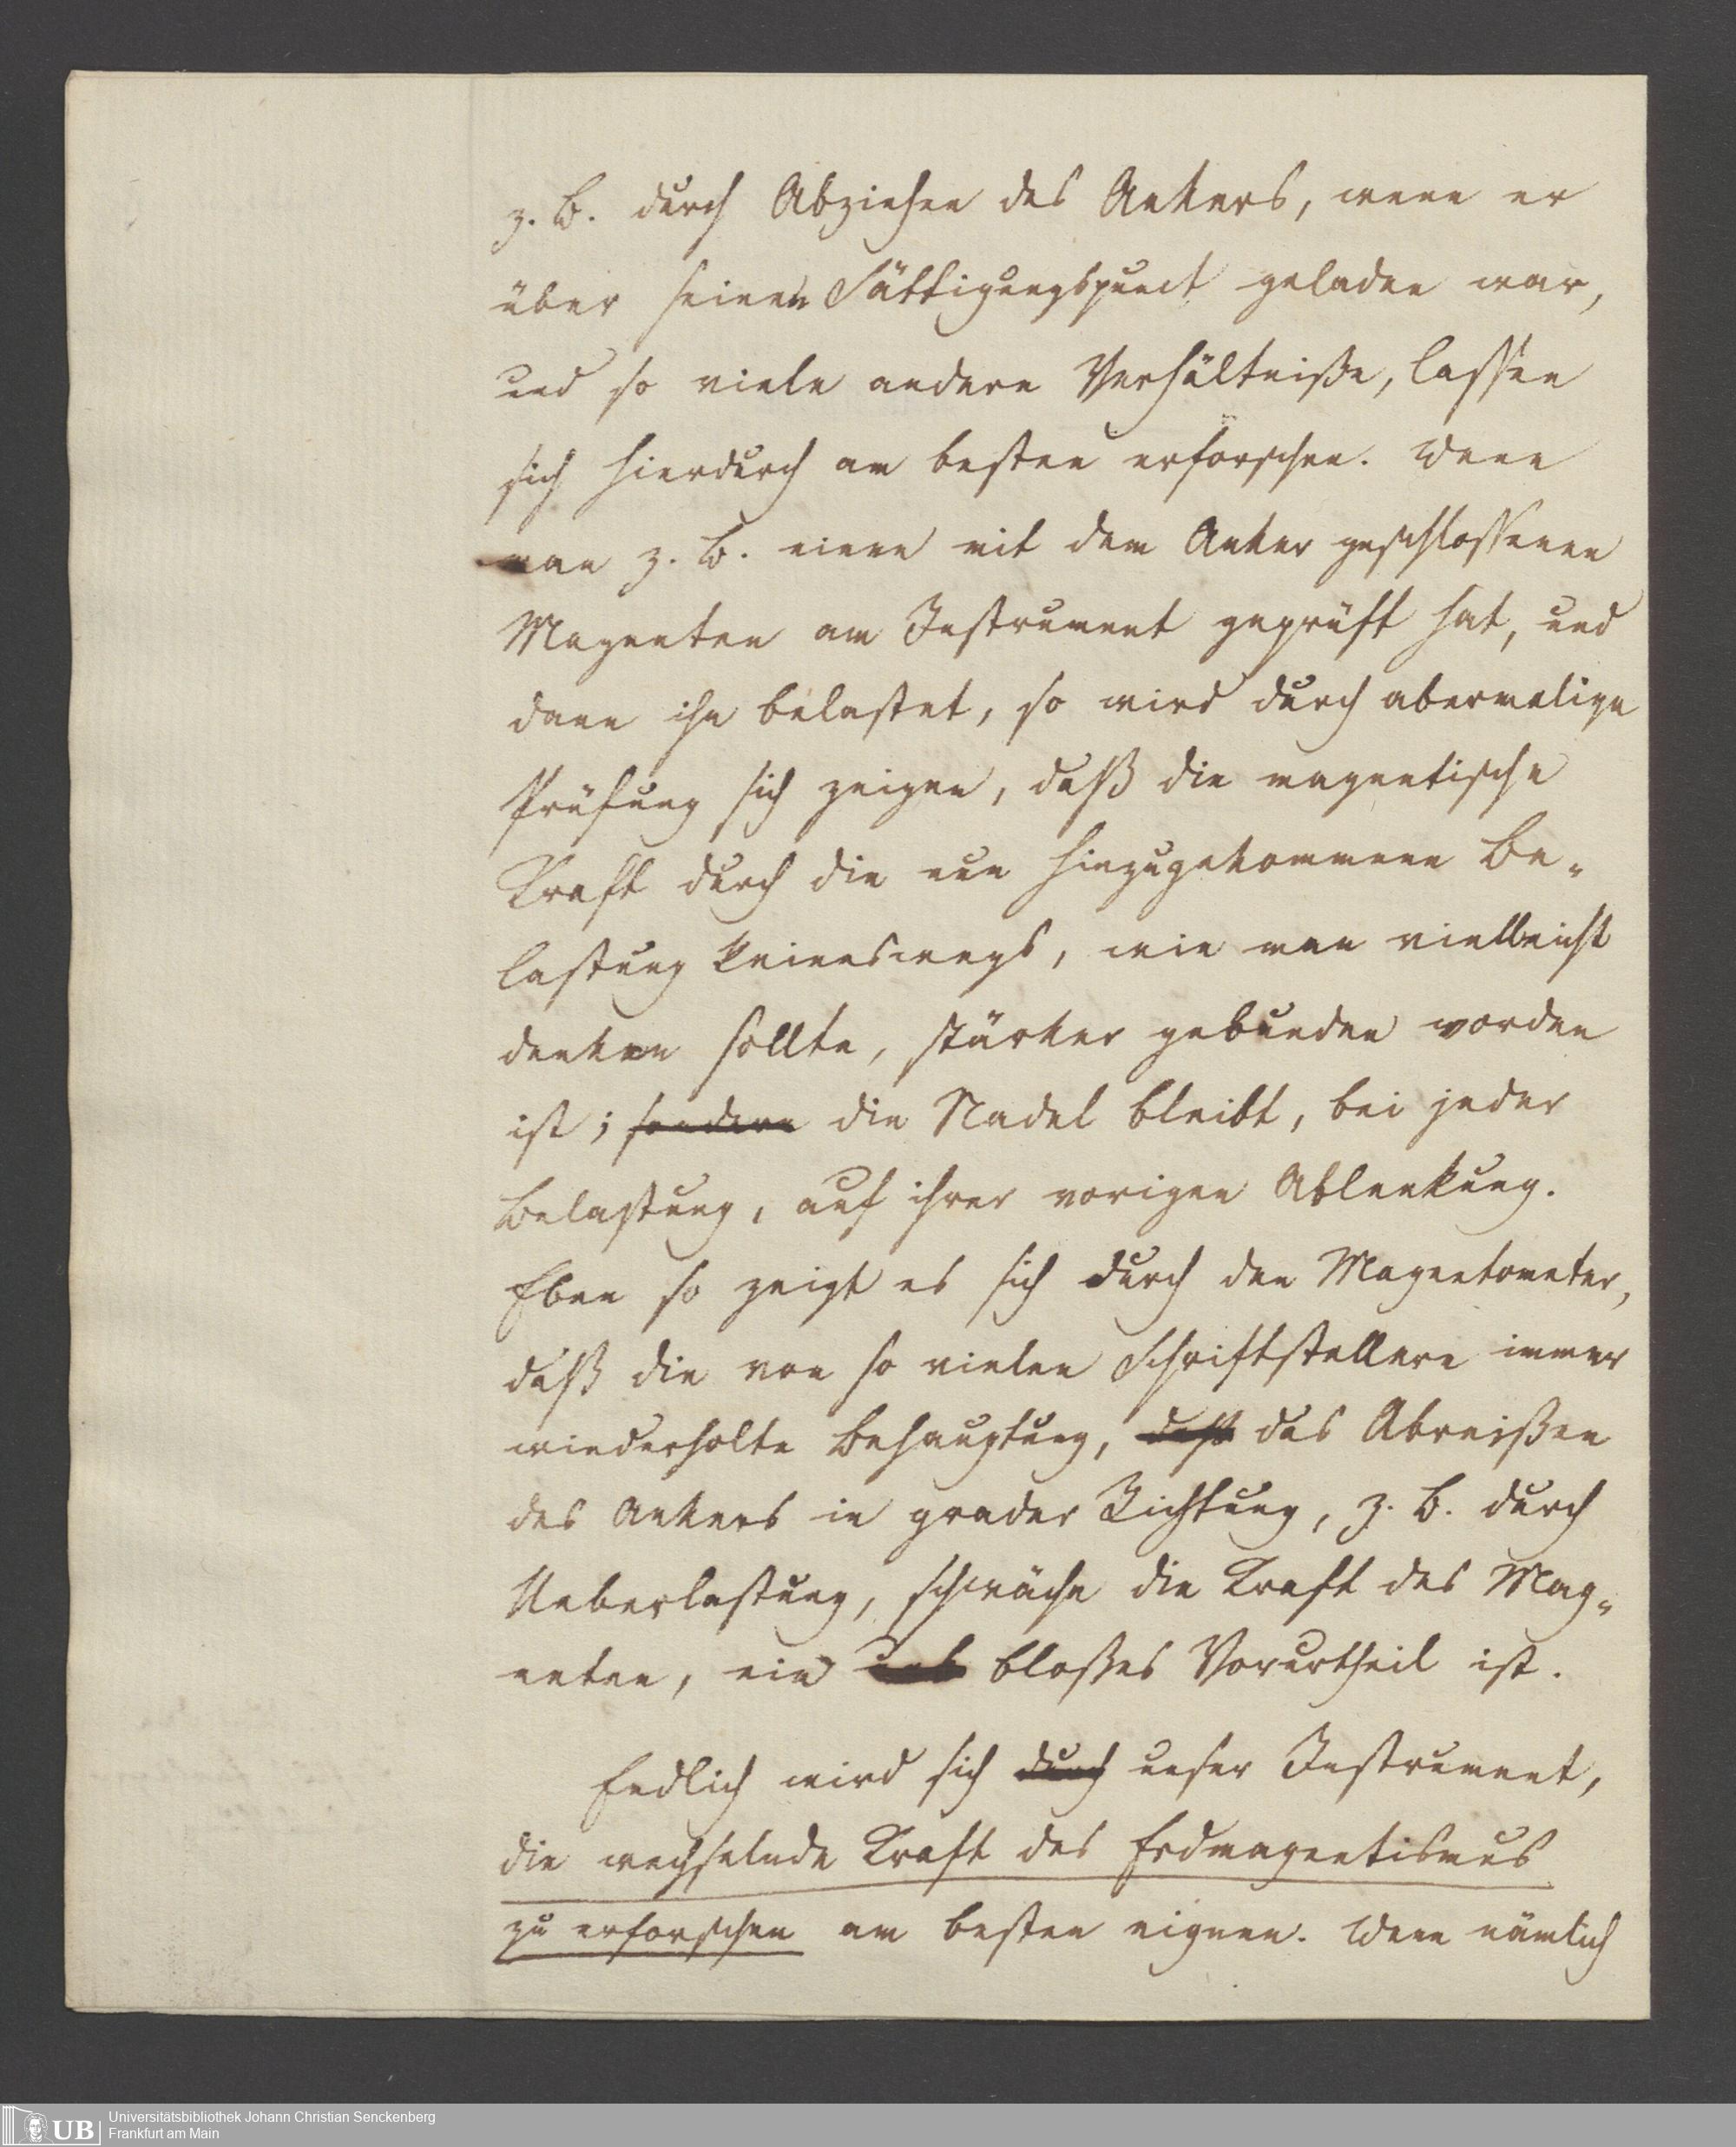 z. B. durch Abziehen des Ankers, wenn er
über seinen Sättigungspunct geladen war,
und so viele andere Verhältniße, lassen
sich hierdurch am besten erforschen. Wenn
man z. B. einen mit dem Anker geschlossenen
Magneten am Instrument geprüft hat, und
dann ihn belastet, so wird durch abermalige
Prüfung sich zeigen, daß die magnetische
Kraft durch die nun hinzugekommene Be-
lastung keineswegs, wie man vielleicht
denken sollte, stärker gebunden worden
ist; sondern die Nadel bleibt, bei jeder
Belastung, auf ihrer vorigen Ablenkung.
Eben so zeigt es sich durch den Magnetometer,
daß die von so vielen Schriftstellern immer
wiederholte Behauptung, daß das Abreißen
des Ankers in grader Richtung, z. B. durch
Ueberlastung, schwäche die Kraft des Mag-
neten, ein bloßes Vorurtheil ist.
Endlich wird sich durch unser Instrument,
die wechselnde Kraft des Erdmagnetismus
zu erforschen am besten eignen. Wenn nämlich
UB
Universitätsbibliothek Johann Christian Senckenberg
Frankfurt am Main